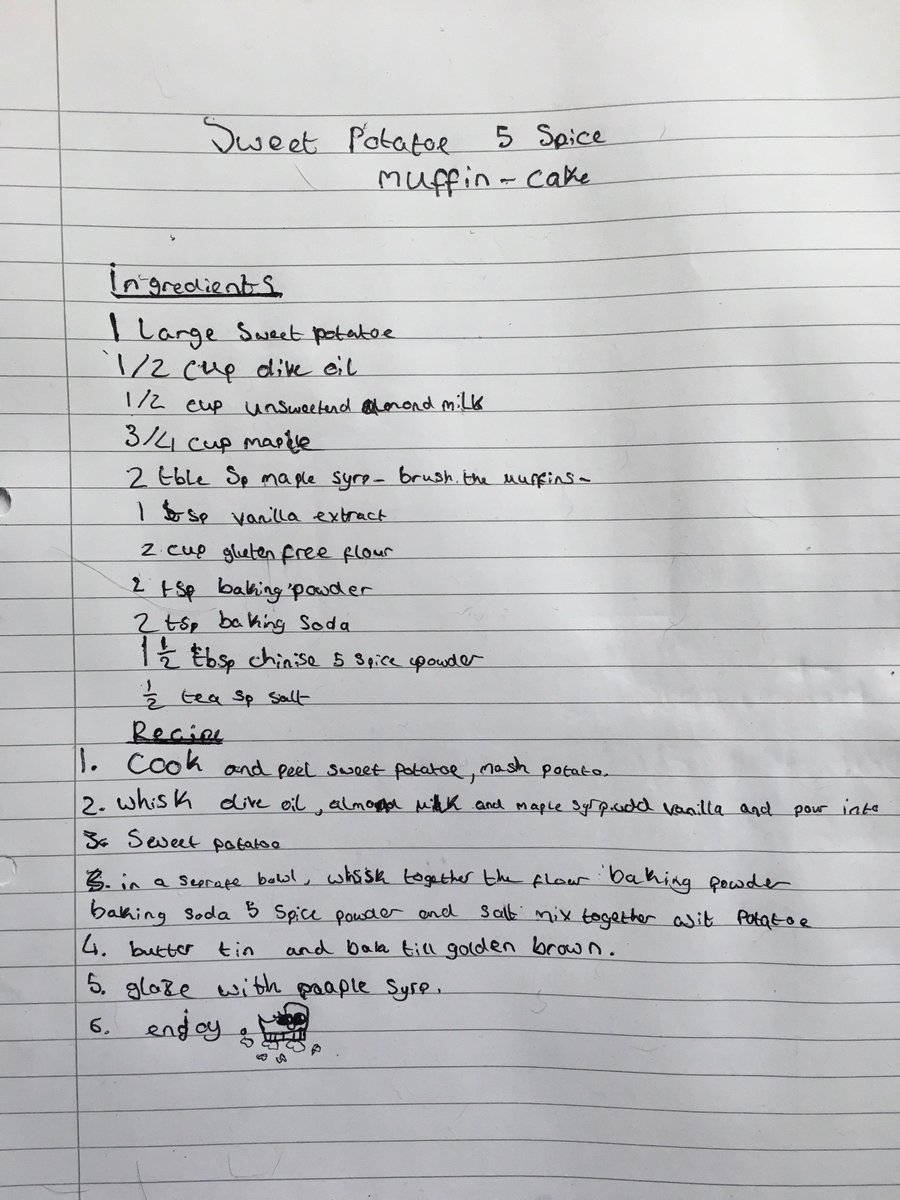 Sweet Potatoe 5 Spice
muffin - cake
Ingredients
1 Large Sweet potatoe
1/2 cup olive oil
1/2 cup unsweetend almond milk
3/4 cup maple
2 tble Sp maple syrp - brush the muffins -
1 tsp vanilla extract
2 cup gluten free flour
2 tsp baking powder
2 tsp baking soda
1 1/2 tbsp chinise 5 spice powder
1/2 tea sp salt
Recipe
1. Cook and peel sweet potatoe, mash potato.
2. whisk olive oil, almond milk and maple syrp. add vanilla and pour into
Sweet potatoe
3. in a seprate bowl, whisk together the flour baking powder
baking soda 5 spice powder and salt mix together wit Potatoe
4. butter tin and bake till golden brown.
5. glaze with syrp.
6. enjoy